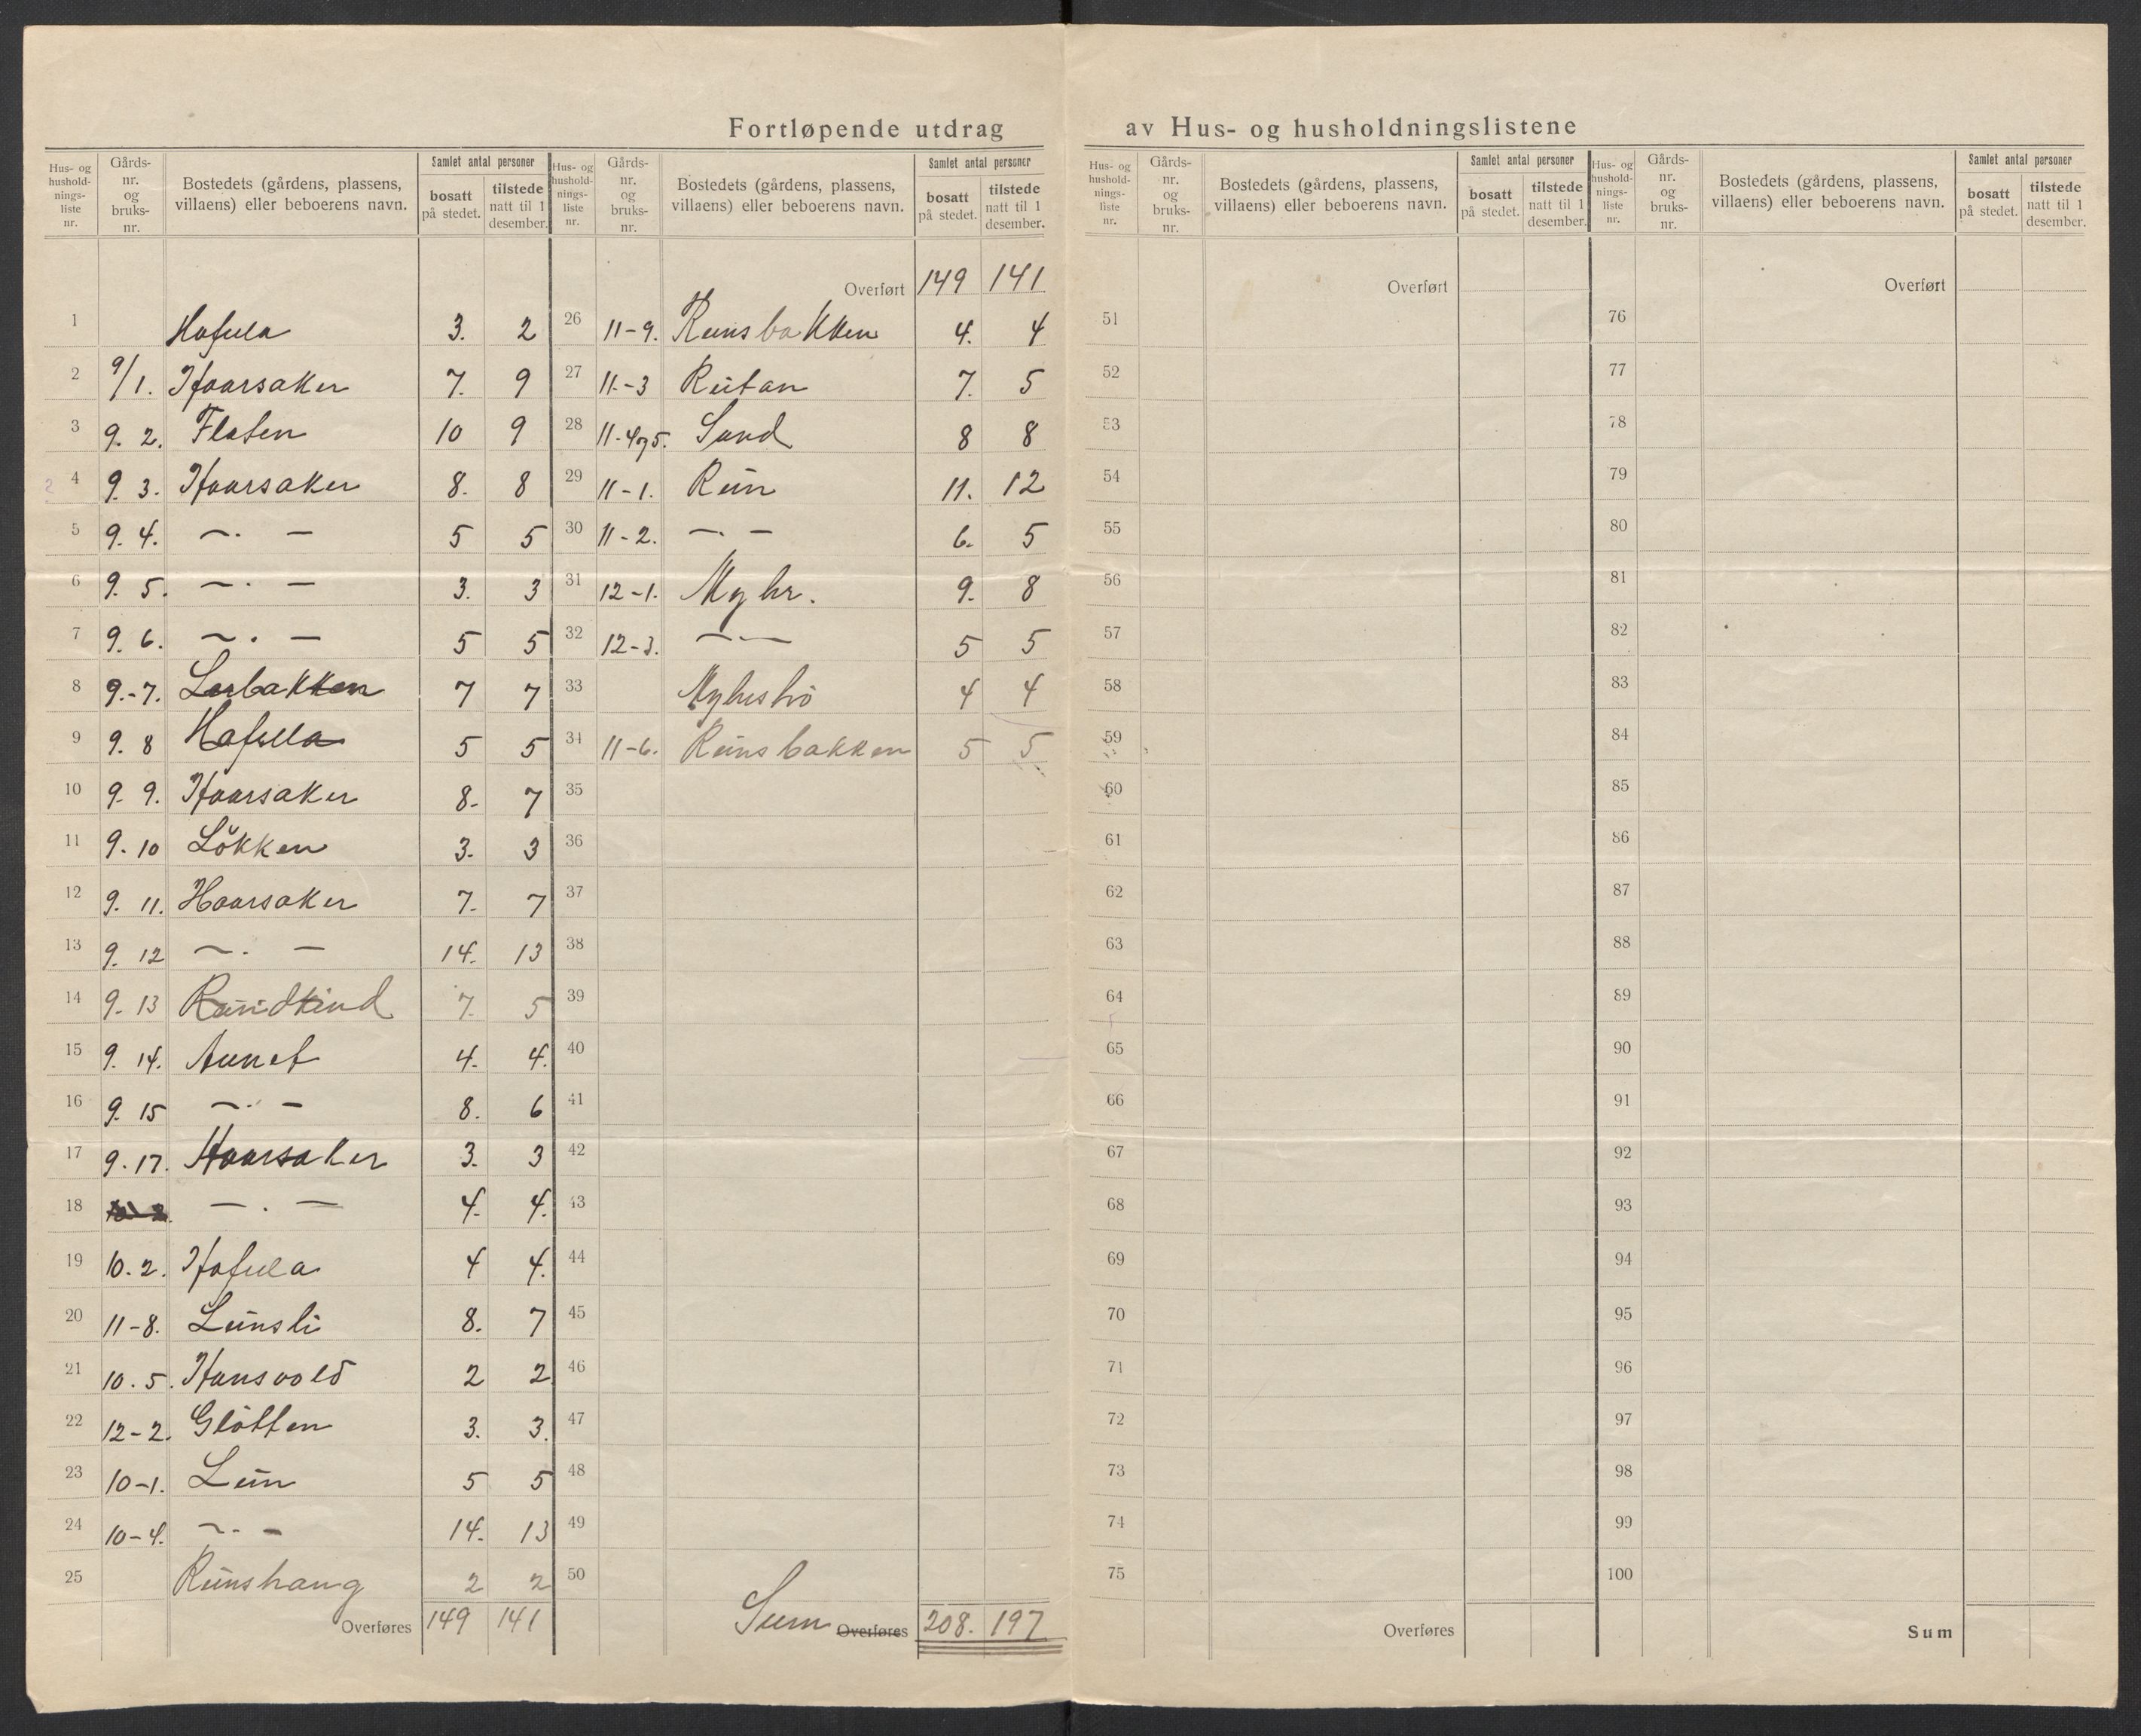 Fortløpende utdrag av Hus- og husholdningslistene
Hus- og hushold-nings-liste nr. Gårds-nr. og bruks-nr. Bostedets (gårdens, plassens, villaens) eller beboerens navn. Samlet antal personer bosatt på stedet. tilstede natt til 1 desember.
1 Hafella 3. 2
2 9/1. Haarsaker 7. 9
3 9. 2. Flaten 10 9
4 9. 3. Haarsaker 8. 8
5 9. 4. — . — 5 5
6 9. 5. — . — 3. 3
7 9. 6. — . — 5 5
8 9.-7. Lerbakken 7 7
9 9. 8 Hafella 5 5
10 9. 9. Haarsaker 8. 7
11 9. 10 Lökken 3. 3
12 9. 11. Haarsaker 7. 7
13 9. 12 — . — 14. 13
14 9. 13 7. 5
15 9. 14. Aunet 4. 4.
16 9. 15 — . — 8. 6
17 9. 17. Haarsaker 3. 3
18 — . — 4. 4.
19 10. 2. Hafella 4 4.
20 11-8. Lunsli 8. 7
21 10. 5. Hunsvold 2 2
22 12-2. Glötten 3. 3.
23 10-1. Lun 5 5
24 10-4. — . — 14. 13
25 Runshaug 2 2
Overføres 149 141
Hus- og hushold-nings-liste nr. Gårds-nr. og bruks-nr. Bostedets (gårdens, plassens, villaens) eller beboerens navn. Samlet antal personer bosatt på stedet. tilstede natt til 1 desember.
Overført 149 141
26 11-9. Runsbakken 4. 4
27 11.-3 Rutan 7. 5
28 11-4og5. Sand 8 8
29 11-1. Run 11. 12
30 11-2. — . — 6. 5
31 12-1. Myhr. 9. 8
32 12-3. — . — 5 5
33 4 4
34 11-6. Runsbakken 5 5
35
36
37
38
39
40
41
42
43
44
45
46
47
48
49
50
Sum Overføres 208. 197
Hus- og hushold-nings-liste nr. Gårds-nr. og bruks-nr. Bostedets (gårdens, plassens, villaens) eller beboerens navn. Samlet antal personer bosatt på stedet. tilstede natt til 1 desember.
Overført
51
52
53
54
55
56
57
58
59
60
61
62
63
64
65
66
67
68
69
70
71
72
73
74
75
Overføres
Hus- og hushold-nings-liste nr. Gårds-nr. og bruks-nr. Bostedets (gårdens, plassens, villaens) eller beboerens navn. Samlet antal personer bosatt på stedet. tilstede natt til 1 desember.
Overført
76
77
78
79
80
81
82
83
84
85
86
87
88
89
90
91
92
93
94
95
96
97
98
99
100
Sum